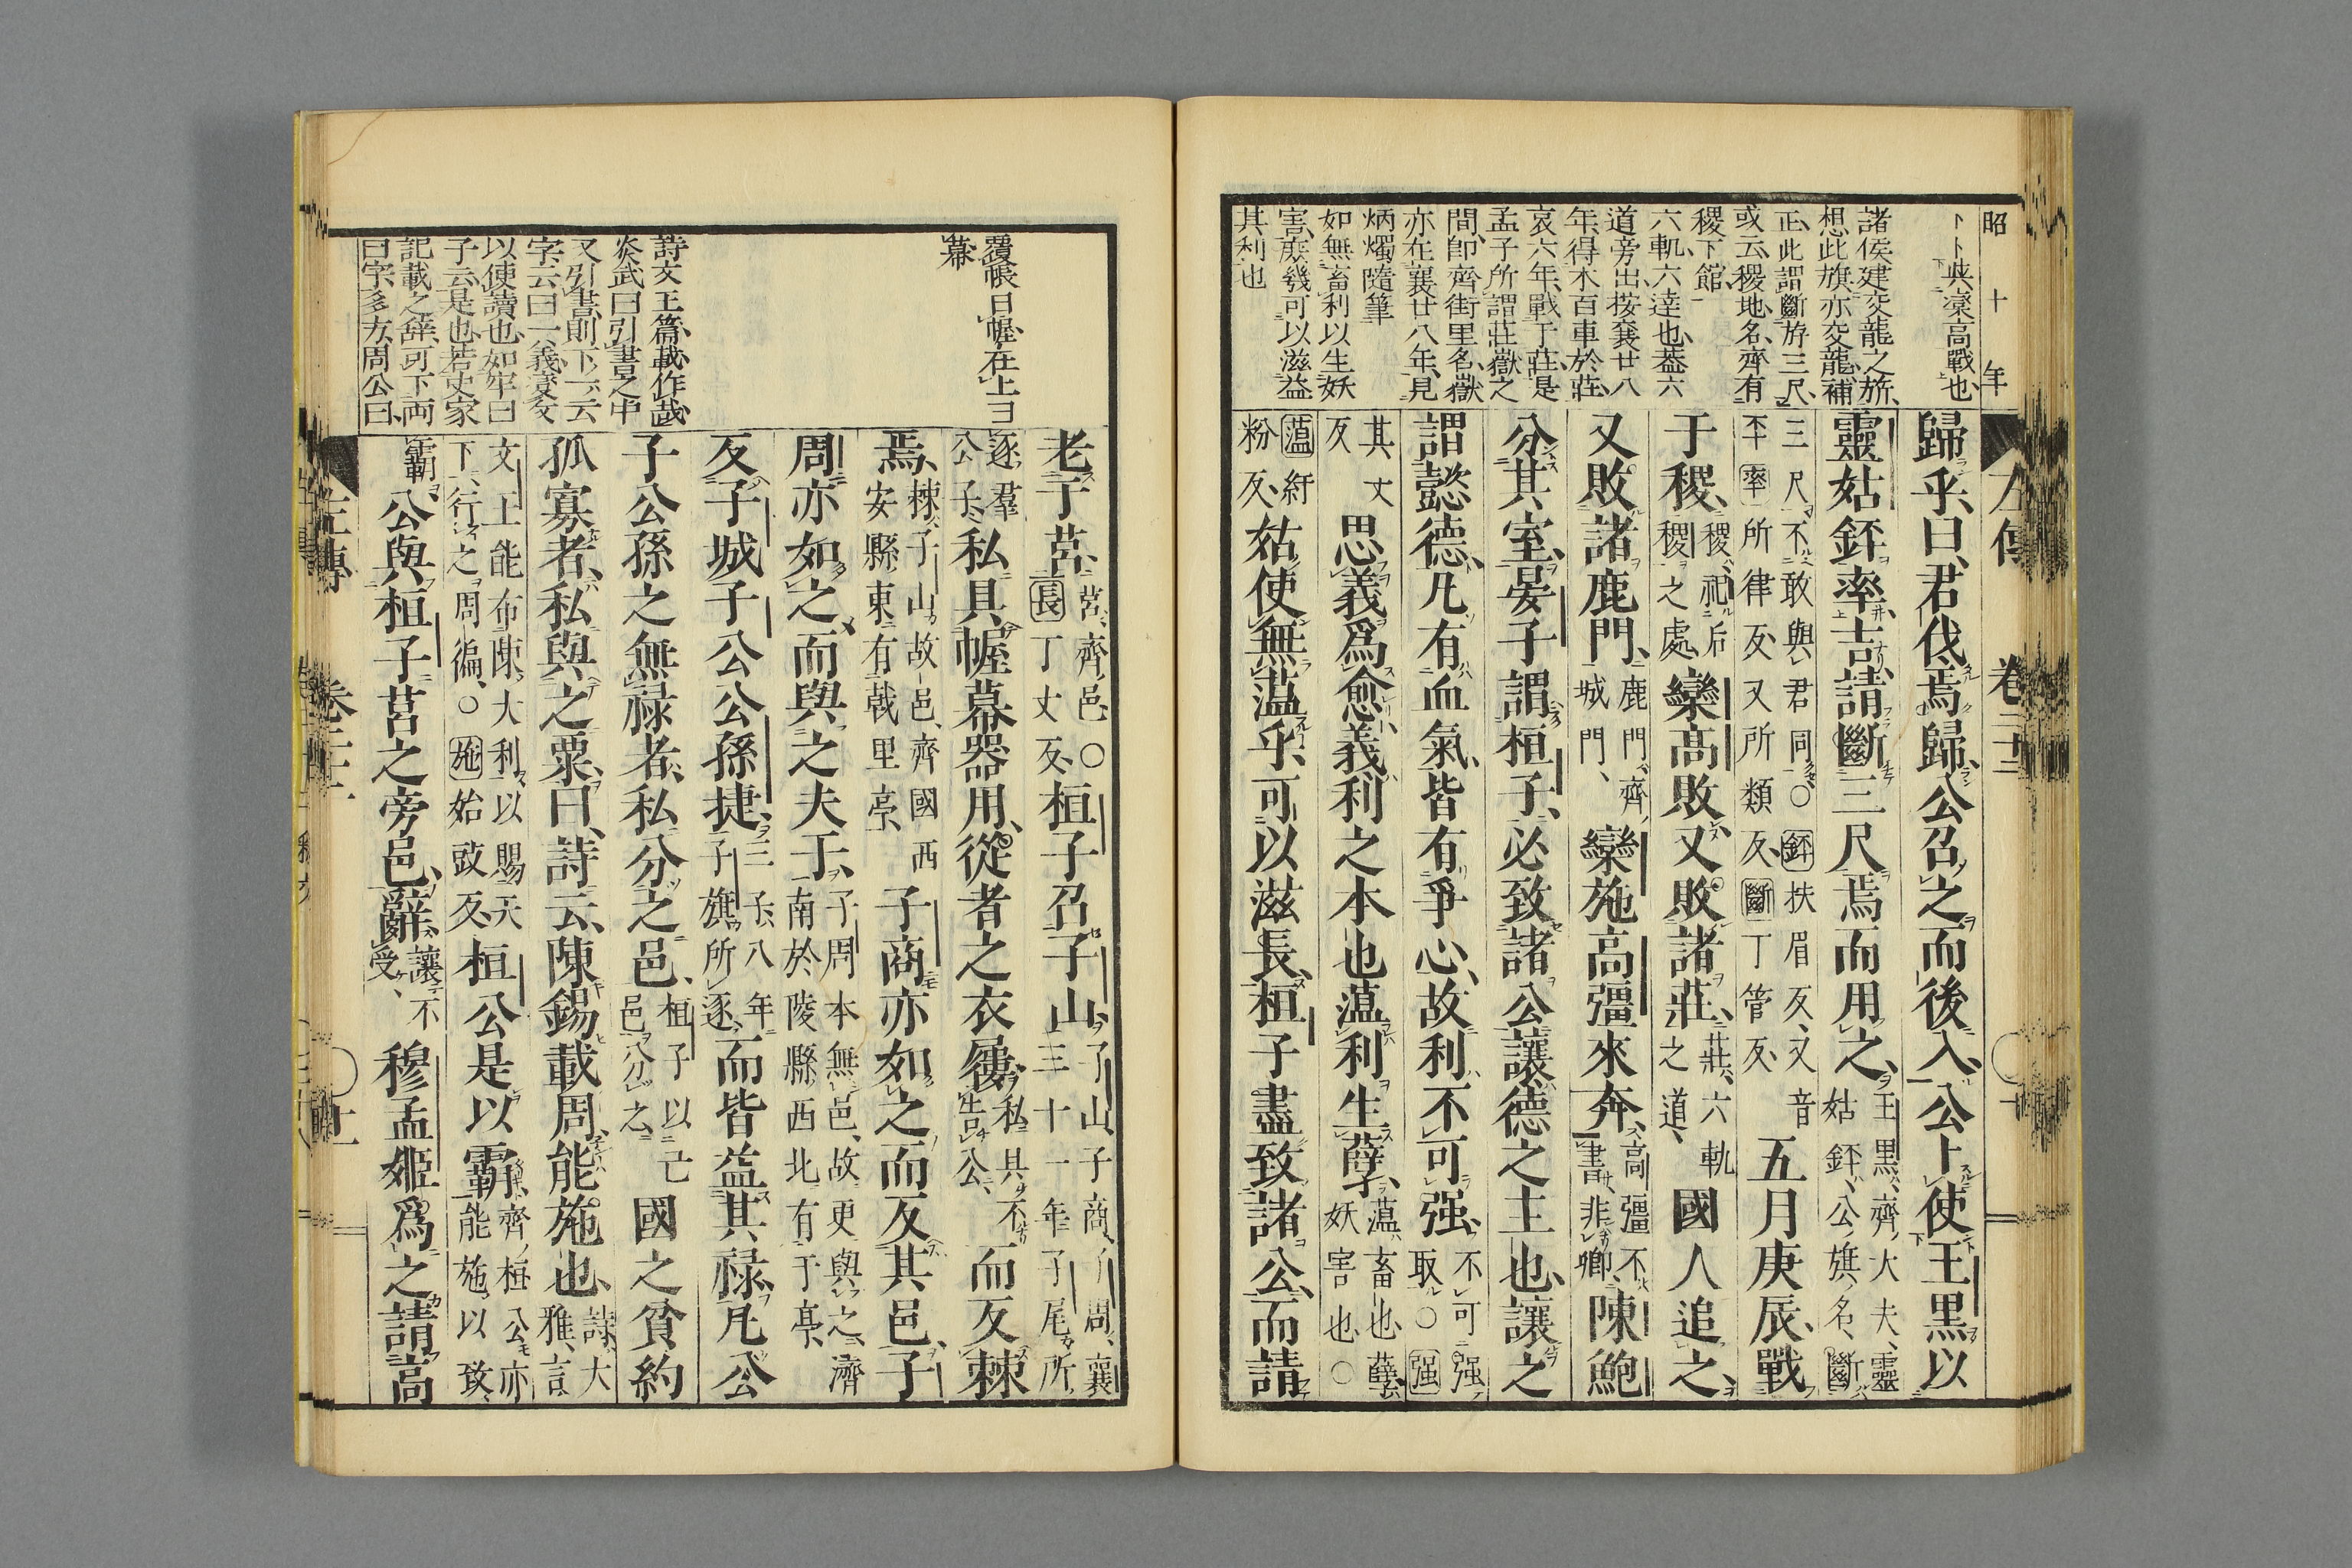 昭十年
卜卜與欒高戰也
諸侯建交龍之旂
想此旗亦交龍補
正此謂斷斿三尺
或云稷地名齊有
稷下館
六軌六達也蓋六
道旁出按襄廿八
年得木百車於莊
哀六年戰于莊是
孟子所謂莊嶽之
間即齊街里名嶽
亦在襄廿八年見
炳燭隨筆
如無畜利以生妖
害庶幾可以滋益
其利也
歸乎曰君伐焉歸公召之而後入公卜使王黑以
靈姑銔率吉請斷三尺焉而用之王黑齊大夫靈姑銔公旗名斷
三尺不敢與君同○銔扶眉反又音丕率所律反又所類反斷丁管反五月庚辰戰
于稷稷祀后稷之處欒高敗又敗諸莊莊六軌之道國人追之
又敗諸鹿門鹿門齊城門欒施高彊來奔高彊不書非卿陳鮑
分其室晏子謂桓子必致諸公讓德之主也讓之
謂懿德凡有血氣皆有爭心故利不可强不可强取○强
其丈反思義爲愈義利之本也薀利生孽薀畜也孽妖害也○
薀紆粉反姑使無薀乎可以滋長桓子盡致諸公而請
左傳 卷二十二
老于莒莒齊邑○長丁丈反桓子召子山子山子商子周襄三十一年子尾所
逐羣公子私具幄幕器用從者之衣屨私具不告公而反棘
焉棘子山故邑齊國西安縣東有戟里亭子商亦如之而反其邑子
周亦如之而與之夫于子周本無邑故更與之濟南於陵縣西北有于亭
反子城子公公孫捷三子八年子旗所逐而皆益其禄凡公
子公孫之無禄者私分之邑桓子以己邑分之國之貧約
孤寡者私與之粟曰詩云陳錫載周能施也詩大雅言
文王能布陳大利以賜天下行之周徧○施始豉反桓公是以霸齊桓公亦能施以致
霸公與桓子莒之旁邑辭讓不受穆孟姬爲之請高
覆帳曰幄在上曰
幕
詩文王篇載作哉
炎武曰引書之中
又引書則下一云
字云曰一義變文
以使讀也如牢曰
子云是也若史家
記載之辭可下兩
曰字多方周公曰
左傳